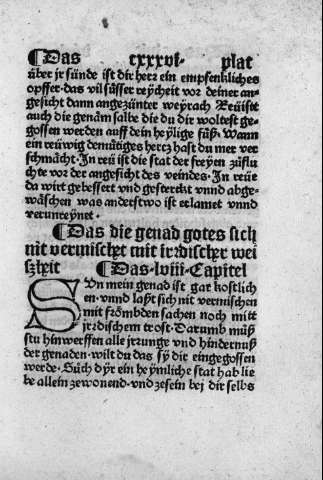 ¶Das cxxxvi· plat
über jr sünde ist dir herr ein empfenkliches
opffer·das vil süsser reücheit vor deiner an-
gesicht dann angezünter weyrach Reü ist
auch die genäm salbe die du dir woltest ge-
gossen werden auff dein heylige füß· Wann
ein reüwig demütiges hertz hast du mer ver
schmächt·In reü ist die stat der freyen zůflu
chte vor der angesicht des veindes·In reüe
da wirt gebessert vnd gesterckt vnnd abge-
wäschen was anderstwo ist erlamet vnnd
verunreynet·
¶Das die genad gotes sich
nit vermischet mit irdischer wei
szheit ¶Das·lviii·Capitel
SVn mein genad ist gar kostlich
en·vnnd laßt sich nit vermischen
mit frömbden sachen noch mitt
jrdischem trost·Darumb můß
stu hinwerffen alle jrrunge vnd hindernuß
der genaden·wilt du das sy dir eingegossen
werde·Sůch dir ein heymliche stat hab lie
be allein zewonend·vnd zesein bej dir selbs